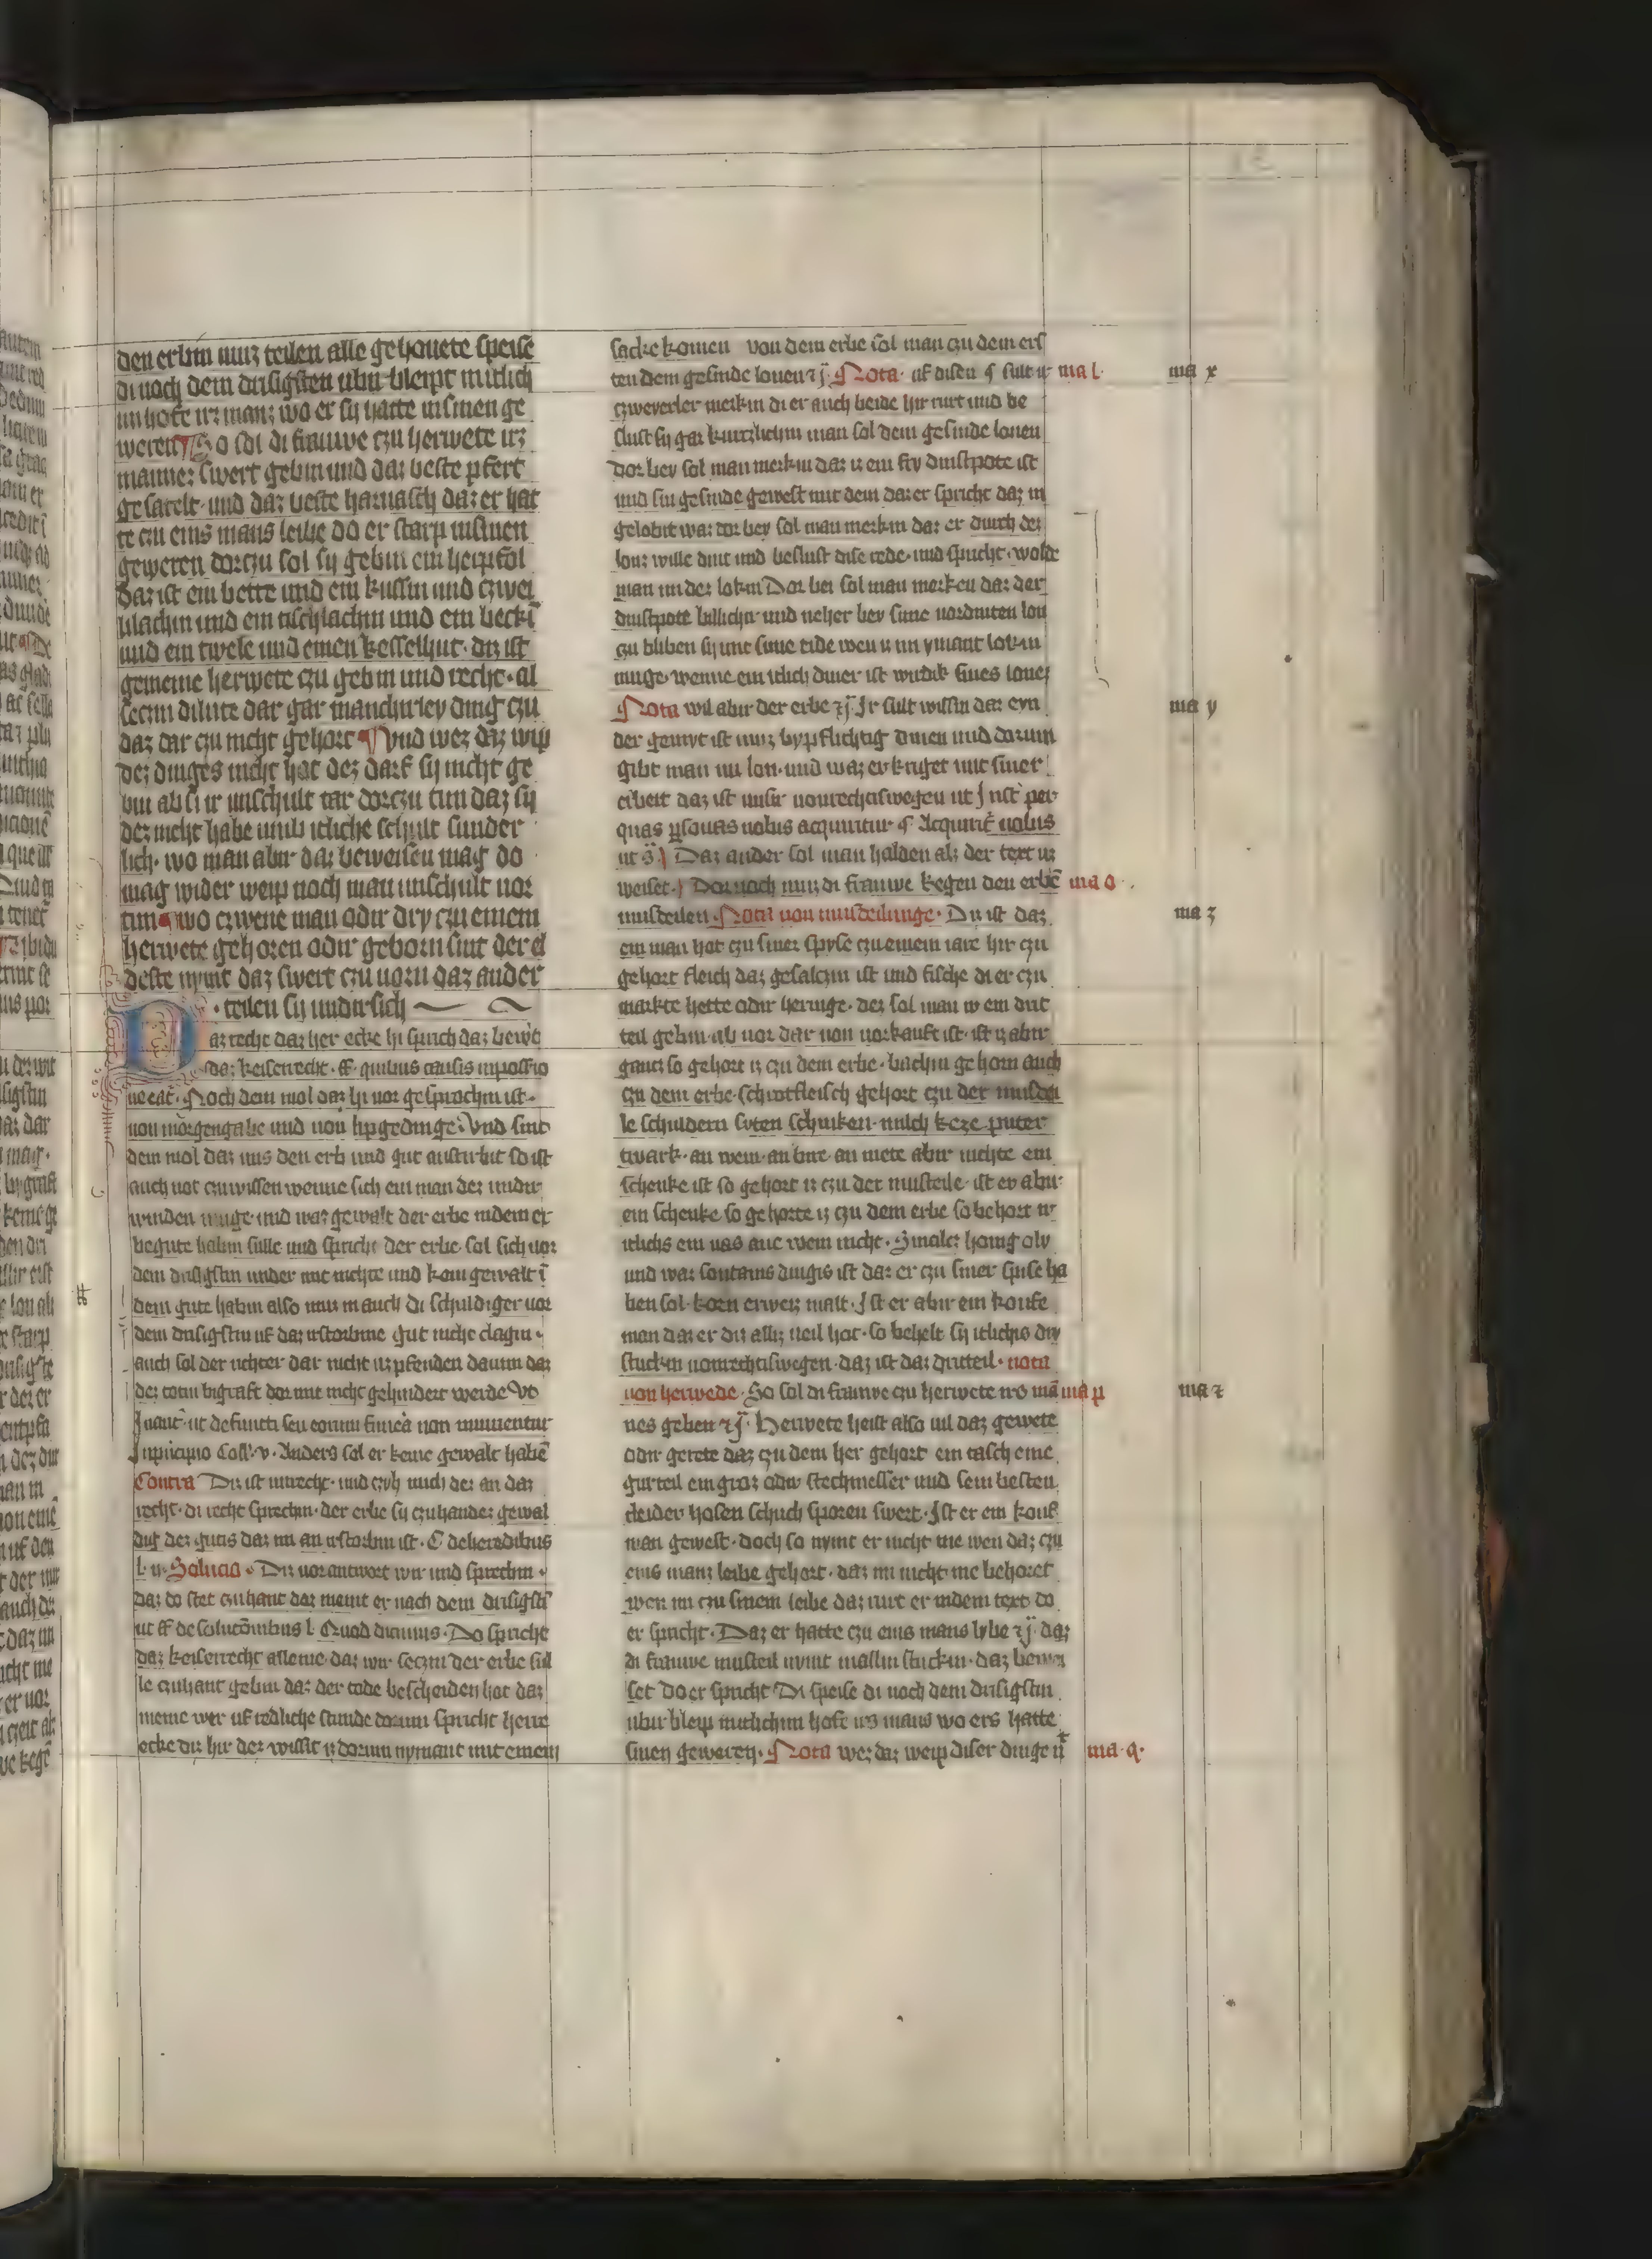 den erbin muz teilen alle gehouete speise
di noch dem drisigsten ubir bleipt in itlich
im hofe irz manz wo er sy hatte in sinen ge
weren ¶ So sol di frauwe czu herwete irz
mannez swert gebin und daz beste pfert
gesatelt · und daz beste harnasch daz er hat
te czu eins mans leibe do er starp in sinen
geweren dorczu sol sy gebin ein herpfol
Daz ist ein bette und ein kussin und czwei
lilachin und ein tischlachin und ein becki
und ein twele und einen kesselhut · diz ist
gemeine herwete czu gebin und recht · al
seczin di lute dar gar manchirley ding czu
daz dar czu nicht gehort ¶ Und wez daz wip
dez dinges nicht hat dez darf sy nicht ge
bin ab si ir unschult tar dorczu tun daz sy
dez nicht habe umb itliche schult sunder
lich · wo man abir daz beweisen mag do
mag wider weip noch man unschult vor
tun ¶ wo czwene man odir dry czu einem
herwete gehoren odir geborn sint der el
deste nymt daz swert czu vorn daz ander
· teilen sy undir sich
Daz recht daz her ecke hi spricht daz bewert
daz keiserrecht · ff · quibus causis in possessio
ne eat · Noch dem mol daz hi vor gesprochin ist ·
von morgengabe und von lipgedinge · Und sint
dem mol daz uns den erb und gut anstirbit so ist
auch not czu wissen wenne sich ein man dez undir
winden muge · und waz gewalt der erbe in dem er
begute habin sulle und spricht der erbe · sol sich vor
dem drisigstin under mit nichte und kein gewalt i
dem gute habin also muz man auch di schuldiger vor
dem drisigstin uf daz irstorbine gut nicht clagin ·
auch sol der richter dar nicht uz pfenden darum daz
dez totin bigraft dor mit nicht gehindert werde Ut
In aut ut defuncti seu eorum funera non iniurientur
In principio Coll · v · Anders sol er keine gewalt haben
Contra Diz ist unrecht · und czyh mich dez an daz
recht · di recht sprechin · der erbe sy czuhandez gewal
dig dez gutis daz im an irstorbin ist · C de heredibus
l · ii · Solucio · Diz vorantwort wir und sprechin ·
daz do stet czuhant daz meint er nach dem drisigsti
ut ff de solucionibus l · Quod dicimus · Do spricht
daz keiserrecht alleine · daz wir seczin der erbe sul
le czuhant gebin daz der tode bescheiden hot daz
meine wer uf redliche stunde dorum spricht herre
ecke diz hir dez wissit iz dorum nymant mit einem
sacke komen von dem erbe sol man czu dem ers
ten dem gesinde lonen ⁊c̃ · Nota · uf disen § sult ir
czweyerley merkin di er auch beide hir rurt und be
slust sy gar kurczlichin man sol dem gesinde lonen
Dor bey sol man merkin daz iz ein fry dinstpote ist
und sin gesinde gewest mit dem daz er spricht daz in
gelobit waz dor bey sol man merkin daz er durch dez
lonz wille dint und beslust dise rede · und spricht · wolde
man in dez lobin Dor bei sol man merken daz der
dinstpote billichir und neher bey sime vordinten lon
czu bliben sy mit sime eide wen iz im ymant lobin
muge · wenne ein itlich diner ist wirdik sines lonez
Nota wil abir der erbe ⁊c̃ · Ir sult wissin daz eyn
der gemyt ist muz bypflichtig dinen und dorum
gibt man im lon · und waz er kriget mit siner
erbeit daz ist unsir von rechtiswegen ut Inst per
quas personas nobis acquiritur § · Acquirit nobis
ut s̃ · Daz ander sol man halden alz der text uz
weiset · Dor noch muz di frauwe kegen den erben
musteilen · Nota von musteilunge · Diz ist daz
ein man hot czu siner spyse czu einem iare hir czu
gehort fleich daz gesalczin ist und fische di er czu
markte hette odir heringe · dez sol man ir ein drit
teil gebin · ab vor dar von vorkauft ist · ist iz abir
gancz so gehort iz czu dem erbe · bachin gehorn auch
czu dem erbe · schrotfleisch gehort czu der mustei
le schuldern syten schinken · milch keze puter
twark · an wein · an bire · an mete abir nichte ein
schenke ist so gehort iz czu der musteile · ist ey abir
ein schenke so gehorte iz czu dem erbe so behort ir
itlichs ein vas ane wein nicht · Smalcz honig oly
und waz sontanis dingis ist daz er czu siner spise ha
ben sol · korn erweiz malt · Ist er abir ein koufe
man daz er diz allez veil hot · so behelt sy itlichis dry
stuckin von rechtiswegen · daz ist daz dritteil · nota
von herwede · So sol di frauwe czu herwete irs man
nes geben ⁊c̃ · Herwete heist also vil daz gewete
odir gerete daz czu dem her gehort ein tasch eine
gurteil ein groz odir stechmesser und sein besten
cleider hosen schuch sporen swert · Ist er ein kouf
man gewest · doch so nymt er nicht me wen daz czu
eins manz leibe gehort · daz im nicht me behoret
wen im czu sinem leibe daz rurt er in dem text do
er spricht · Daz er hatte czu eins mans lybe ⁊c̃ · daz
di frauwe musteil nymt in allin stuckin · daz bewei
set do er spricht Di speise di noch dem drisigstin
ubir bleip in itlichim hofe irs mans wo ers hatte
sinen geweren · Nota wez daz weip diser dinge n
ma l ·
ma o ·
ma p
ma · q ·
ma x
ma y
ma z
ma ⁊